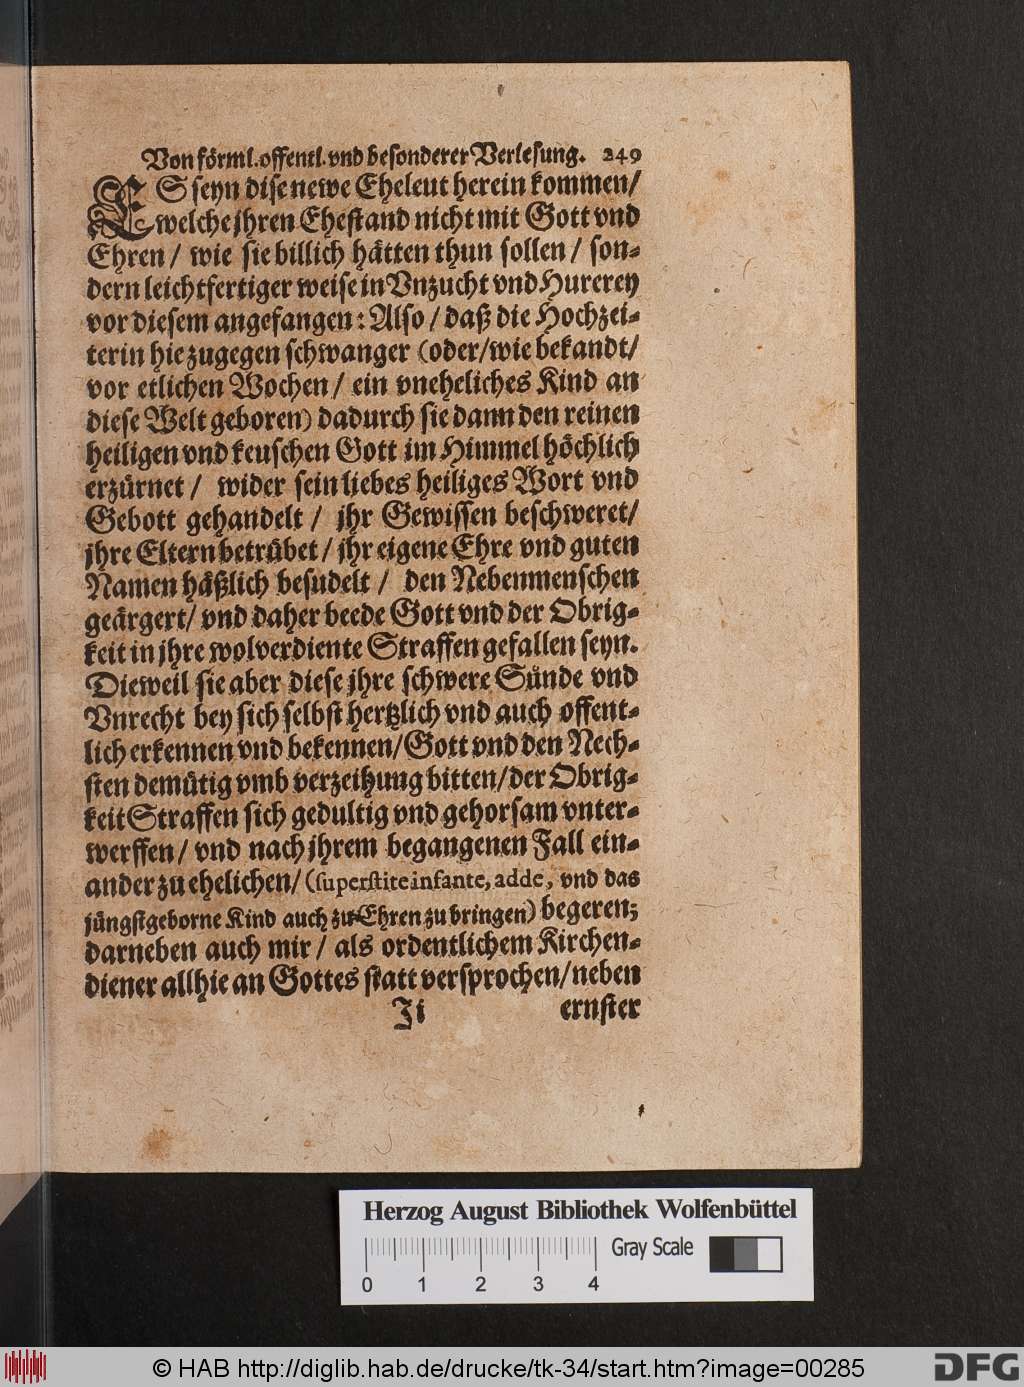 Von förml. offentl. vnd besonderer Verlesung. 249
ES seyn dise newe Eheleut herein kommen/
welche jhren Ehestand nicht mit Gott vnd
Ehren / wie sie billich hätten thun sollen / son-
dern leichtfertiger weise in Vnzucht vnd Hurerey
vor diesem angefangen: Also / daß die Hochzei-
terin hie zugegen schwanger (oder/wie bekandt/
vor etlichen Wochen / ein vneheliches Kind an
diese Welt geboren) dadurch sie dann den reinen
heiligen vnd keuschen Gott im Himmel höchlich
erzürnet / wider sein liebes heiliges Wort vnd
Gebott gehandelt / jhr Gewissen beschweret/
jhre Eltern betrübet / jhr eigene Ehre vnd guten
Namen häßlich besudelt / den Nebenmenschen
geärgert/ vnd daher beede Gott vnd der Obrig-
keit in jhre wolverdiente Straffen gefallen seyn.
Dieweil sie aber diese jhre schwere Sünde vnd
Vnrecht bey sich selbst hertzlich vnd auch offent-
lich erkennen vnd bekennen/Gott vnd den Nech-
sten demütig vmb verzeihung bitten/der Obrig-
keit Straffen sich gedultig vnd gehorsam vnter-
werffen/ vnd nach jhrem begangenen Fall ein-
ander zu ehelichen/ (superstite infante, adde, vnd das
jüngstgeborne Kind auch zu Ehren zu bringen) begeren;
darneben auch mir / als ordentlichem Kirchen-
diener allhie an Gottes statt versprochen/neben
Ji ernster
Herzog August Bibliothek Wolfenbüttel
Gray Scale
0 1 2 3 4
© HAB http://diglib.hab.de/drucke/tk-34/start.htm?image=00285
DFG